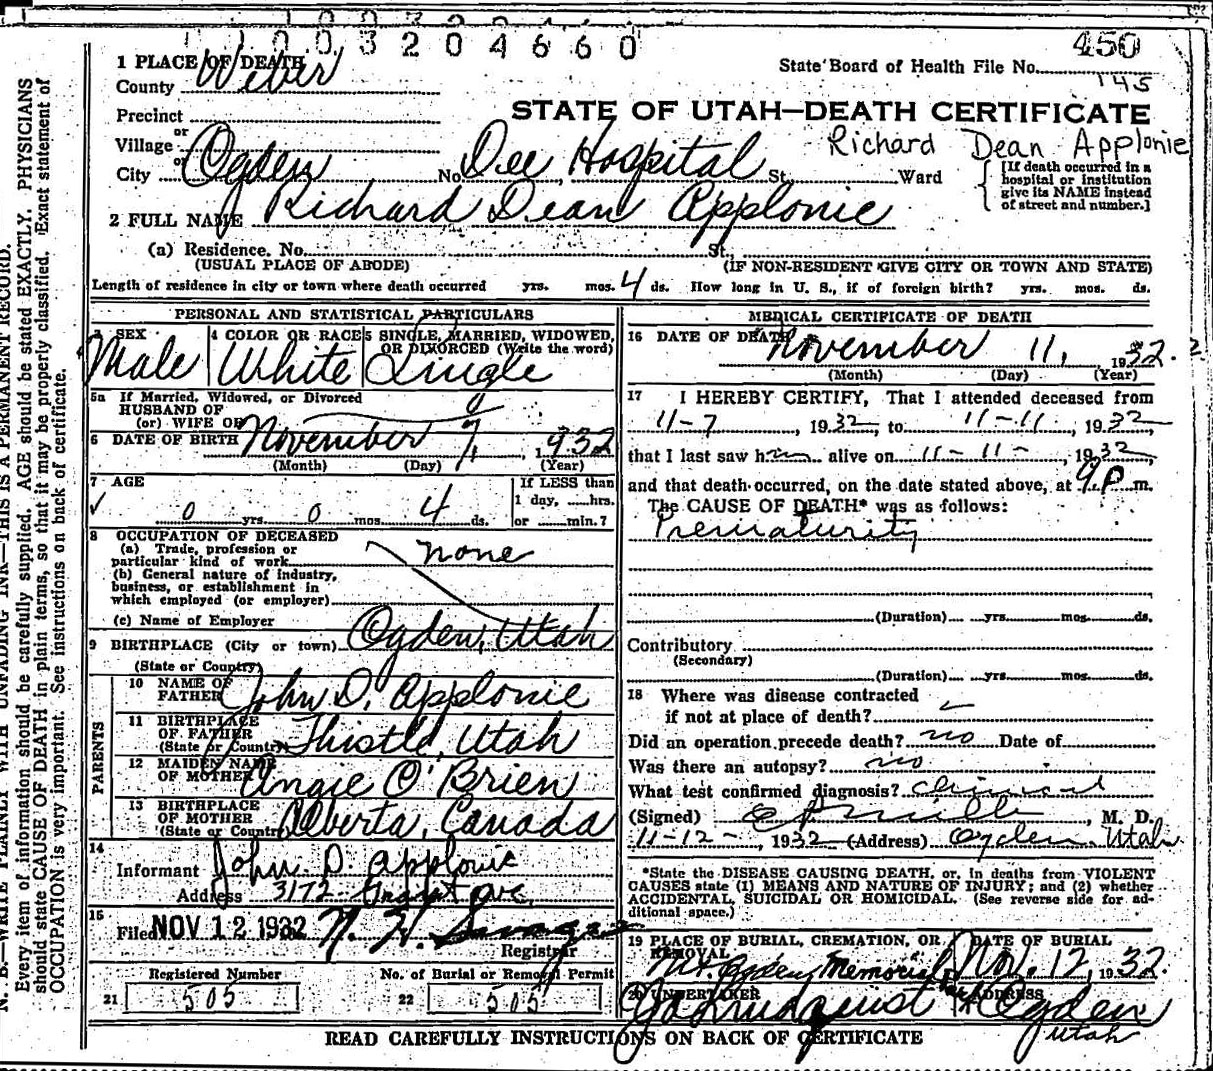 1003204660
450
1 PLACE OF DEATH
State Board of Health File No.
145
County Weber
STATE OF UTAH—DEATH CERTIFICATE
Precinct
or
Village
Richard Dean Applonie
or
City Ogden No. Dee Hospital St. Ward
[If death occurred in a
hospital or institution
give its NAME instead
of street and number.]
2 FULL NAME Richard Dean Applonie
(a) Residence, No. St.,
(USUAL PLACE OF ABODE) (IF NON-RESIDENT GIVE CITY OR TOWN AND STATE)
Length of residence in city or town where death occurred yrs. mos. 4 ds. How long in U. S., if of foreign birth? yrs. mos. ds.
PERSONAL AND STATISTICAL PARTICULARS
3 SEX 4 COLOR OR RACE 5 SINGLE, MARRIED, WIDOWED,
OR DIVORCED (Write the word)
Male White Single
5a If Married, Widowed, or Divorced
HUSBAND OF
(or) WIFE OF
6 DATE OF BIRTH November 7, 1932
(Month) (Day) (Year)
7 AGE
If LESS than
1 day, hrs.
or min.?
0 yrs. 0 mos. 4 ds.
8 OCCUPATION OF DECEASED
(a) Trade, profession or
particular kind of work none
(b) General nature of industry,
business, or establishment in
which employed (or employer)
(c) Name of Employer
9 BIRTHPLACE (City or town) Ogden, Utah
(State or Country)
PARENTS
10 NAME OF
FATHER John D. Applonie
11 BIRTHPLACE
OF FATHER
(State or Country) Thistle, Utah
12 MAIDEN NAME
OF MOTHER Angie O'Brien
13 BIRTHPLACE
OF MOTHER
(State or Country) Alberta, Canada
14
Informant John D. Applonie
Address 3172 Grant Ave.
15
Filed NOV 12 1932
Registrar
Registered Number No. of Burial or Removal Permit
21 505 22 505
MEDICAL CERTIFICATE OF DEATH
16 DATE OF DEATH November 11, 1932.
(Month) (Day) (Year)
17 I HEREBY CERTIFY, That I attended deceased from
11-7, 1932, to 11-11, 1932,
that I last saw him alive on 11-11-, 1932,
and that death occurred, on the date stated above, at 9 P. m.
The CAUSE OF DEATH* was as follows:
Prematurity
(Duration) yrs. mos. ds.
Contributory
(Secondary)
(Duration) yrs. mos. ds.
18 Where was disease contracted
if not at place of death?
Did an operation precede death? no Date of
Was there an autopsy? no
What test confirmed diagnosis? clinical
(Signed) , M. D.
11-12-, 1932 (Address) Ogden, Utah
*State the DISEASE CAUSING DEATH, or, in deaths from VIOLENT
CAUSES state (1) MEANS AND NATURE OF INJURY; and (2) whether
ACCIDENTAL, SUICIDAL OR HOMICIDAL. (See reverse side for ad-
ditional space.)
19 PLACE OF BURIAL, CREMATION, OR
REMOVAL
DATE OF BURIAL
Mt. Ogden Memorial Park Nov. 12, 1932.
20 UNDERTAKER ADDRESS
Ogden
Utah
READ CAREFULLY INSTRUCTIONS ON BACK OF CERTIFICATE
N. B.—WRITE PLAINLY WITH UNFADING INK—THIS IS A PERMANENT RECORD.
Every item of information should be carefully supplied. AGE should be stated EXACTLY. PHYSICIANS
should state CAUSE OF DEATH in plain terms, so that it may be properly classified. Exact statement of
OCCUPATION is very important. See instructions on back of certificate.